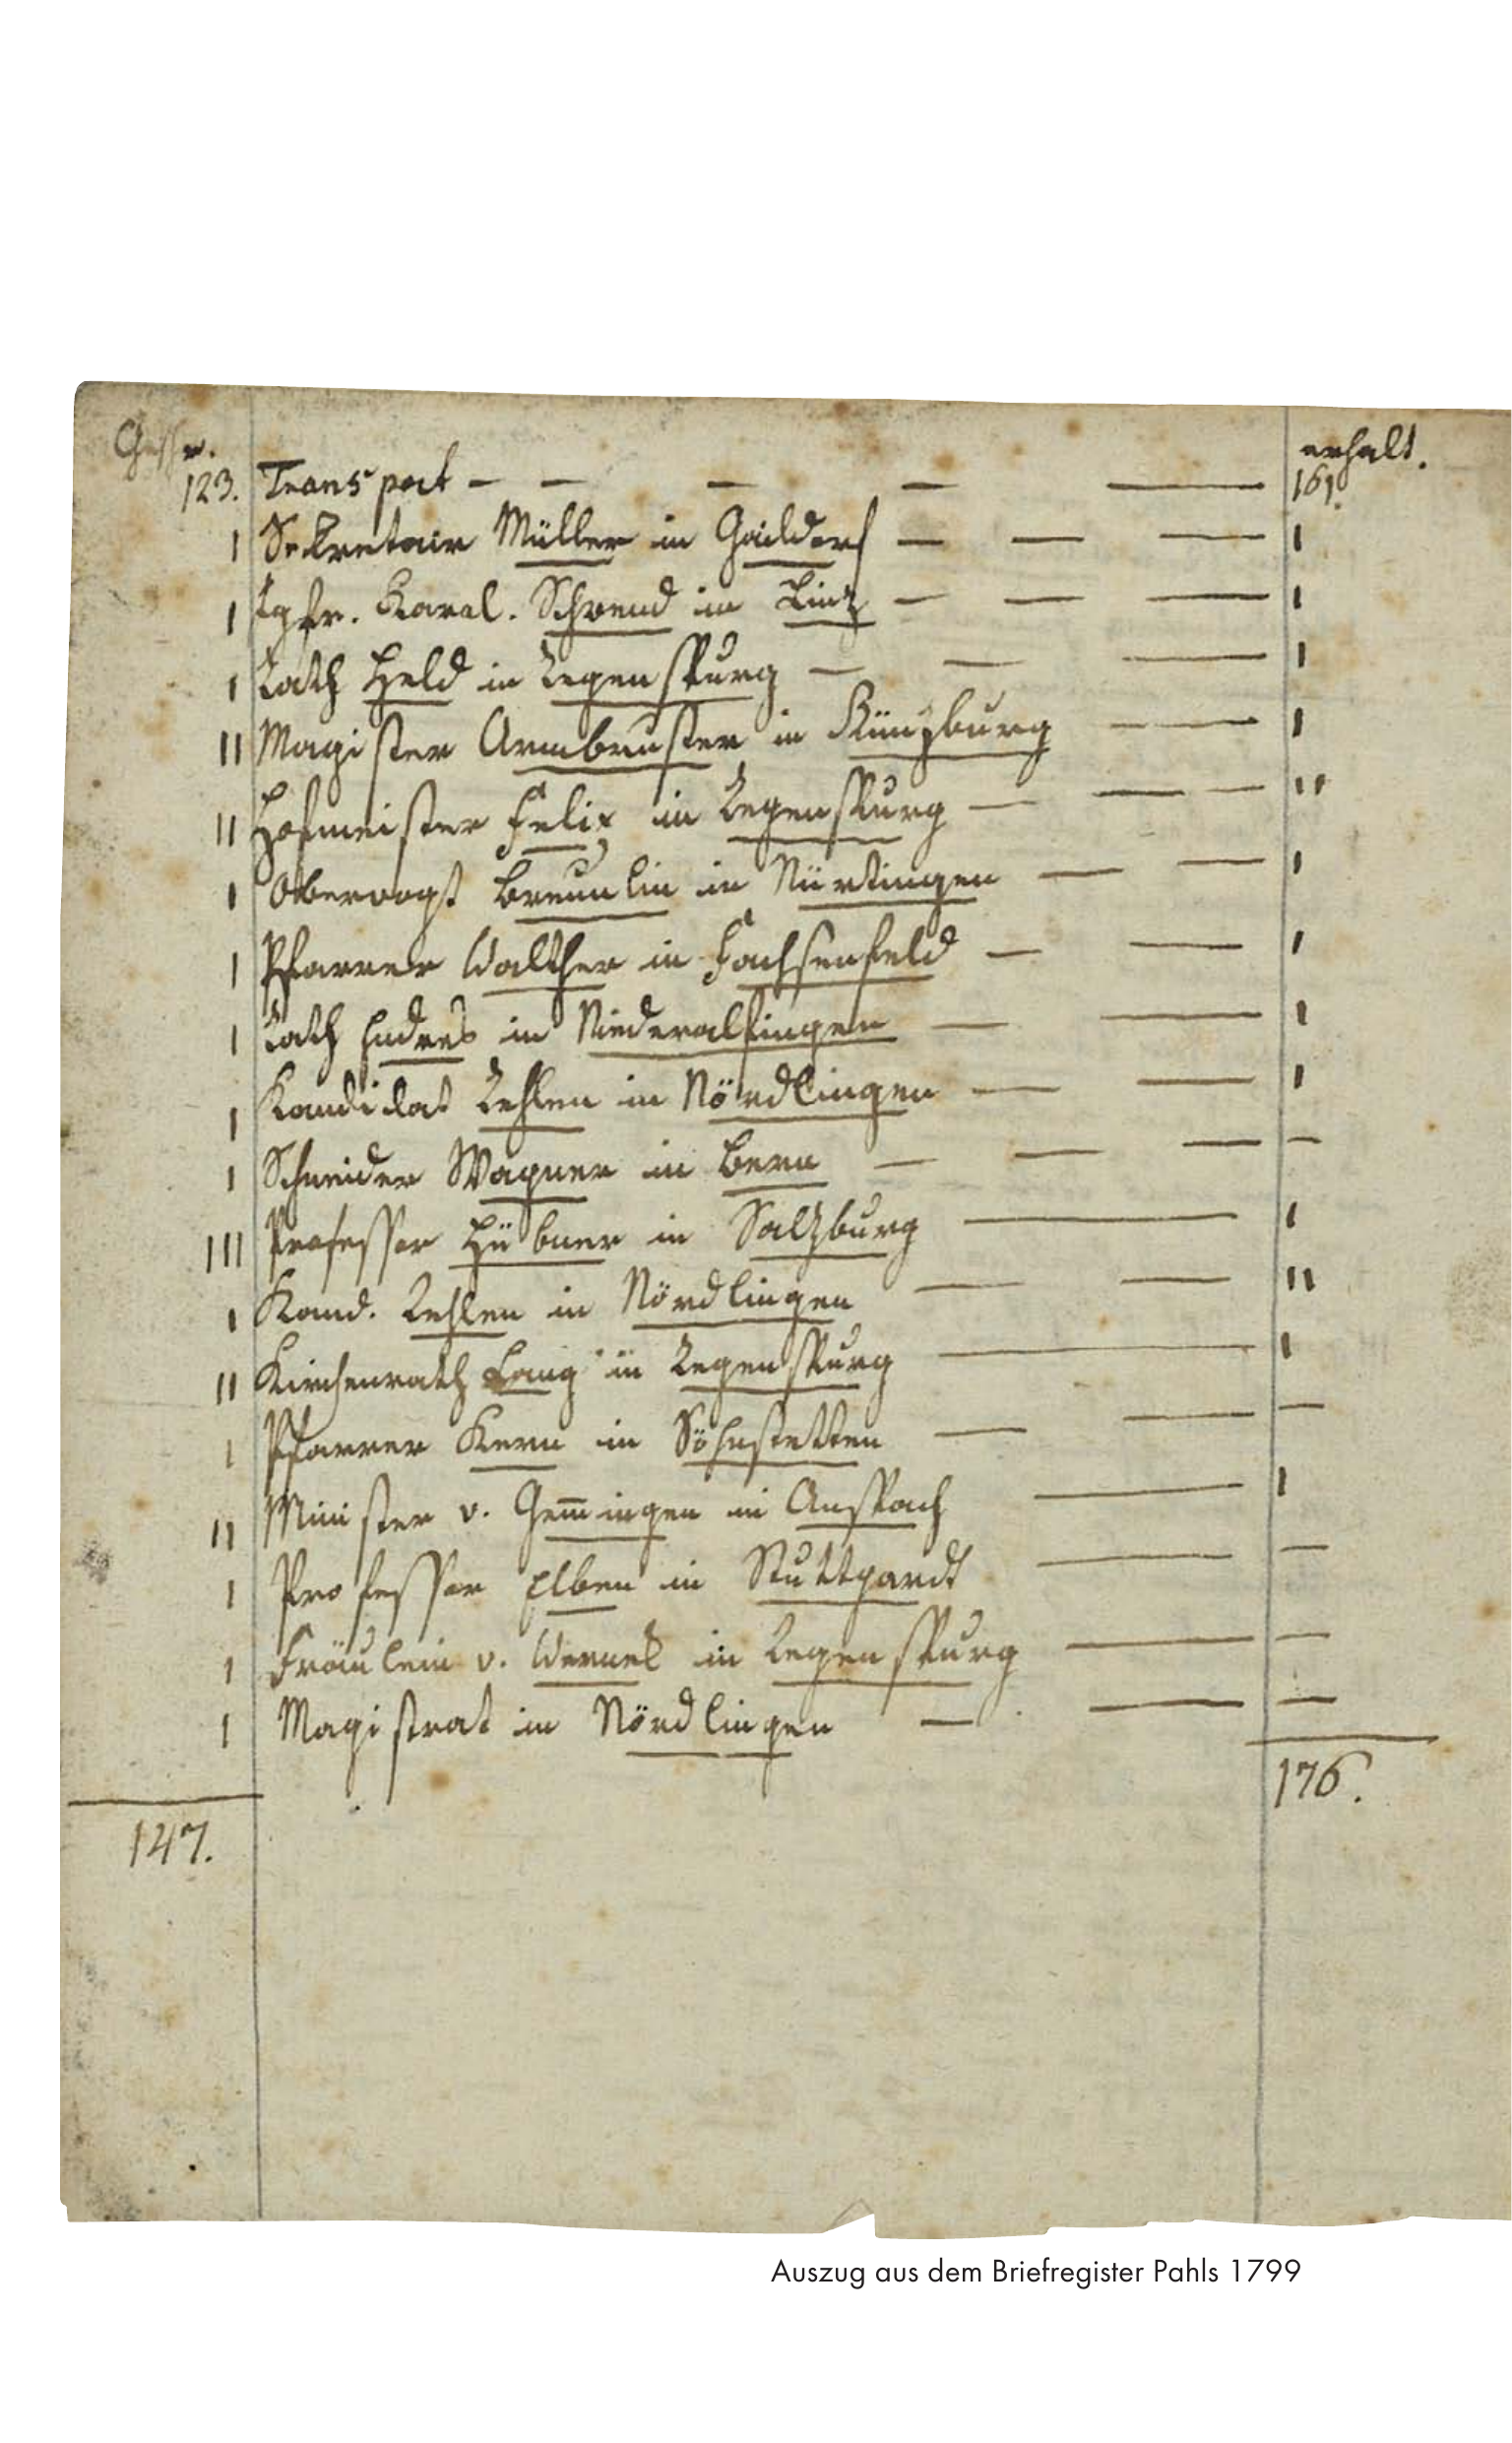 Geschr. erhalt.
123. Transport — — — — — 161.
I Sekretair Müller in Gaildorf — — — I
I Igfr. Karol. Schrend in Linz — — — I
I Rath Held in Regenspurg — — — I
II Magister Armbruster in Künzburg — — I
II Hofmeister Felix in Regenspurg — — — II
I Obervogt Breunlin in Nürtingen — — I
I Pfarrer Walther in Fachsenfeld — — I
I Rath Endres in Niederalfingen — — I
I Kandidat Rehlen in Nördlingen — — I
I Schneider Wagner in Bern — — — —
III Professor Hübner in Salzburg — I
I Kand. Rehlen in Nördlingen — — II
II Kirchenrath Lang in Regenspurg — I
I Pfarrer Kern in Söhnstetten — — —
II Minister v. Gem̅ingen in Anspach — I
I Professor Elben in Stuttgardt — —
I Fräulein v. in Regenspurg — —
I Magistrat in Nördlingen — — —
147. 176.
Auszug aus dem Briefregister Pahls 1799